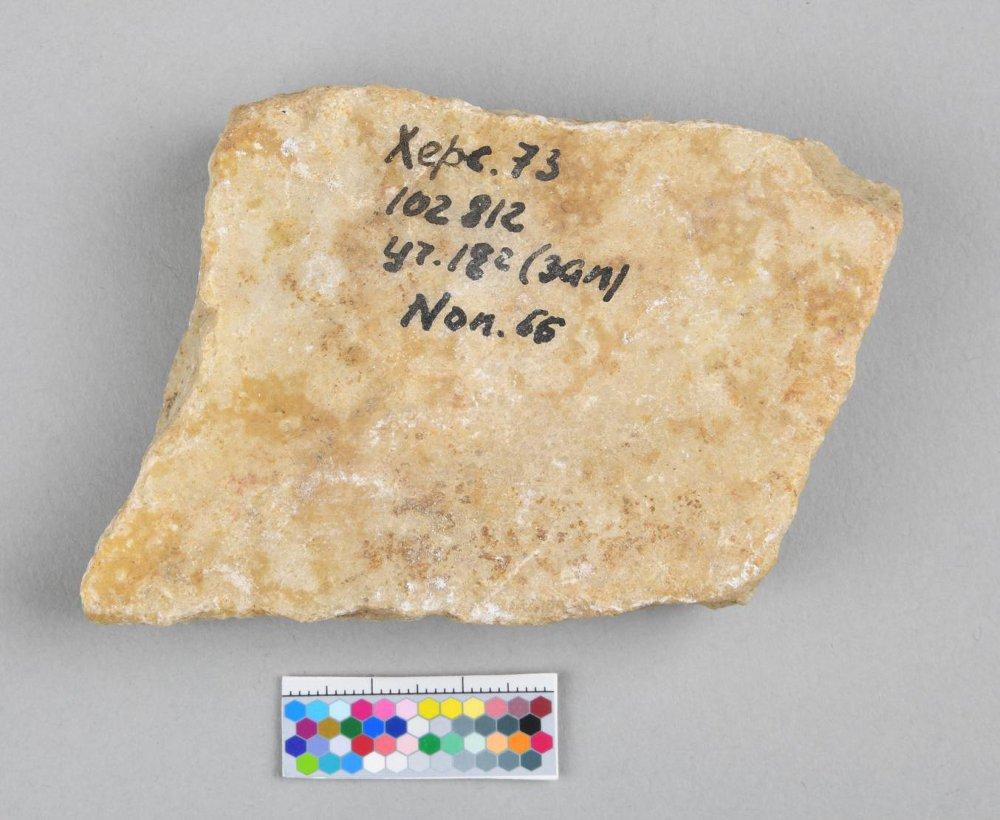 Херс. 73
102 812
уч. 18² (зап)
Пол. 66